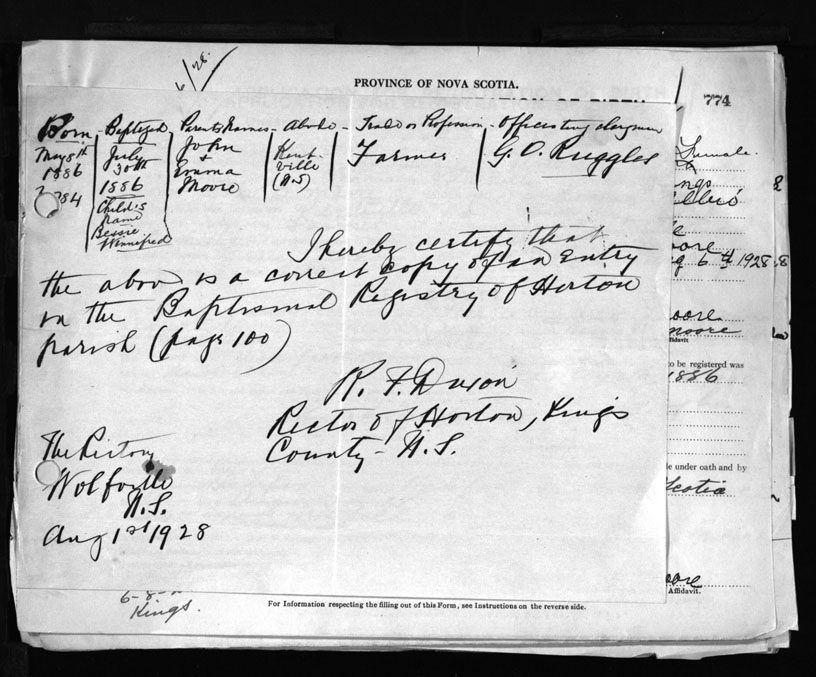 6/28.
PROVINCE OF NOVA SCOTIA.
774
Born - Baptized - Parents Names - Abode - Trade or Profession - Officiating clergyman
May 8th 1886
July 30th 1886
Child's name Bessie Winnifred
John + Emma Moore
Kentville (N.S)
Farmer
G. O. Ruggles
I hereby certify that
the above is a correct copy of an Entry
in the Baptismal Registry of Horton
parish (page 100)
R. F. Dixon
Rector of Horton, Kings
County - N.S.
The Rectory
Wolfville
N.S.
Aug 1st 1928
Female
6th 1928
moore
Affidavit
to be registered was
1886
under oath and by
Scotia
Affidavit.
Kings.
For Information respecting the filling out of this Form, see Instructions on the reverse side.